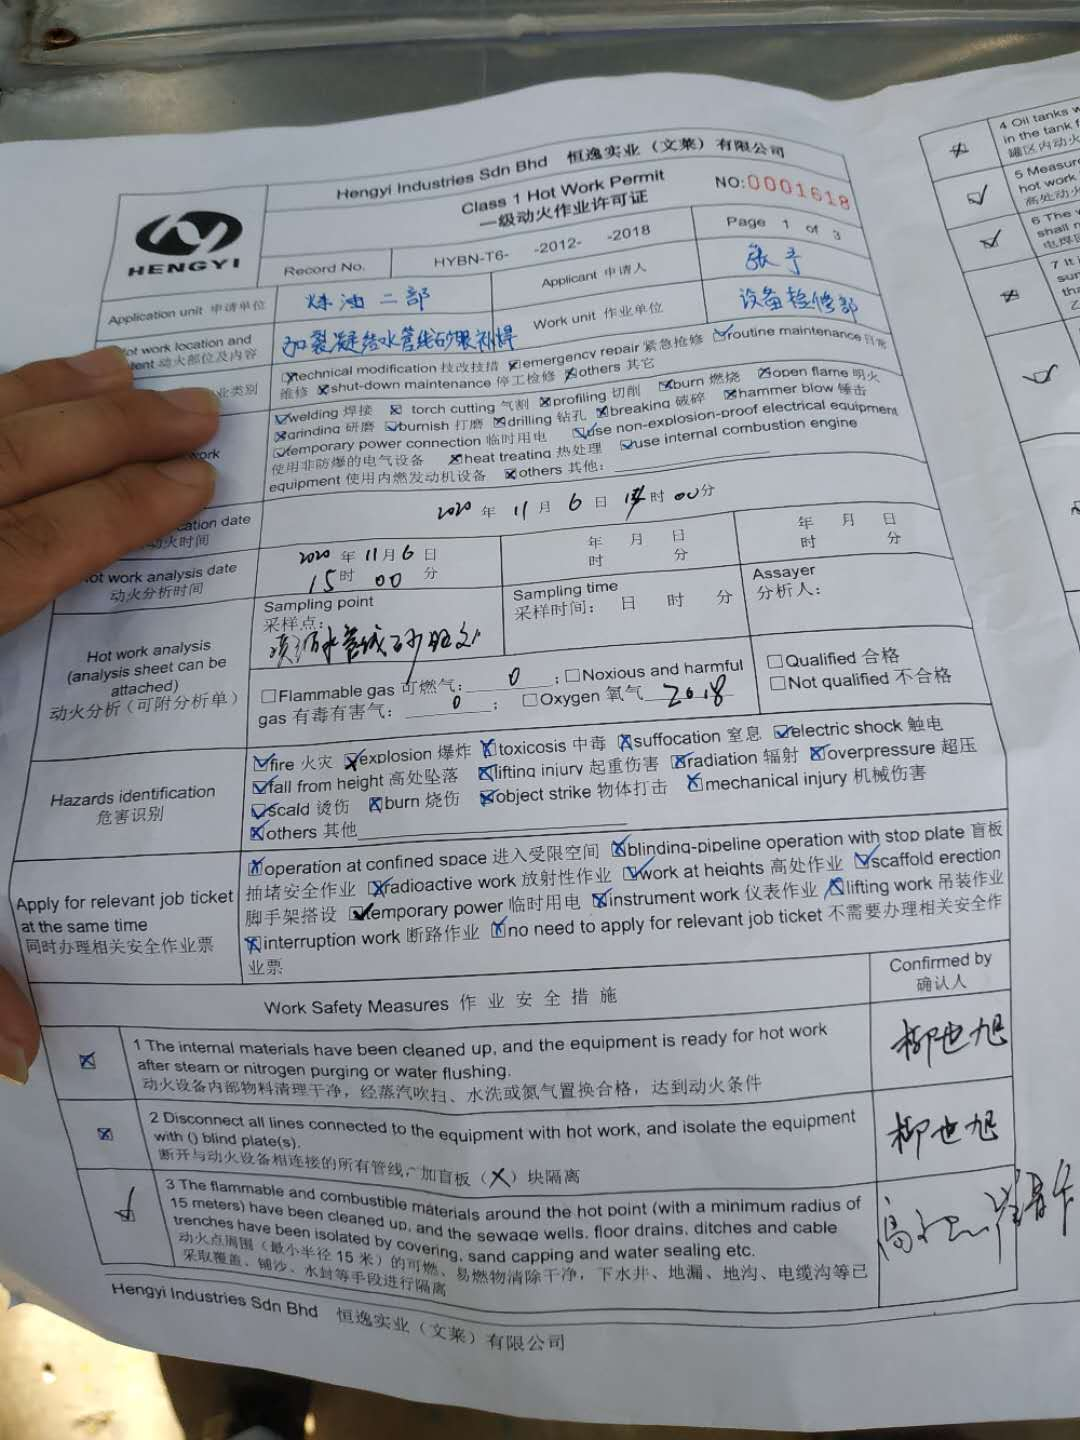 Hengyi Industries Sdn Bhd 恒逸实业（文莱）有限公司
Class 1 Hot Work Permit
一级动火作业许可证
NO:0001618
HENGYI
Record No.
HYBN-T6- -2012- -2018
Page 1 of 3
Application unit 申请单位
炼油二部
Applicant 申请人
张于
ot work location and
tent 动火部位及内容
加裂凝结水管线砂眼补焊
Work unit 作业单位
设备检修部
业类别
technical modification 技改技措 emergency repair 紧急抢修 routine maintenance 日常
维修 shut-down maintenance 停工检修 others 其它
work
welding 焊接 torch cutting 气割 profiling 切削 burn 燃烧 open flame 明火
grinding 研磨 burnish 打磨 drilling 钻孔 breaking 破碎 hammer blow 锤击
temporary power connection 临时用电 use non-explosion-proof electrical equipment
使用非防爆的电气设备 heat treating 热处理 use internal combustion engine
equipment 使用内燃发动机设备 others 其他：
cation date
动火时间
2020 年 11 月 6 日 时 00 分
ot work analysis date
动火分析时间
2020 年 11 月 6 日
15 时 00 分
年 月 日
时 分
年 月 日
时 分
Hot work analysis
(analysis sheet can be
attached)
动火分析（可附分析单）
Sampling point
采样点：
Sampling time
采样时间： 日 时 分
Assayer
分析人：
□Flammable gas 可燃气： 0 ；□Noxious and harmful
gas 有毒有害气： 0 ； □Oxygen 氧气 20.8
□Qualified 合格
□Not qualified 不合格
Hazards identification
危害识别
fire 火灾 explosion 爆炸 toxicosis 中毒 suffocation 窒息 electric shock 触电
fall from height 高处坠落 lifting injury 起重伤害 radiation 辐射 overpressure 超压
scald 烫伤 burn 烧伤 object strike 物体打击 mechanical injury 机械伤害
others 其他
Apply for relevant job ticket
at the same time
同时办理相关安全作业票
operation at confined space 进入受限空间 blinding-pipeline operation with stop plate 盲板
抽堵安全作业 radioactive work 放射性作业 work at heights 高处作业 scaffold erection
脚手架搭设 temporary power 临时用电 instrument work 仪表作业 lifting work 吊装作业
interruption work 断路作业 no need to apply for relevant job ticket 不需要办理相关安全作
业票
Work Safety Measures 作业安全措施
Confirmed by
确认人
1 The internal materials have been cleaned up, and the equipment is ready for hot work
after steam or nitrogen purging or water flushing.
动火设备内部物料清理干净，经蒸汽吹扫、水洗或氮气置换合格，达到动火条件
柳世旭
2 Disconnect all lines connected to the equipment with hot work, and isolate the equipment
with () blind plate(s).
断开与动火设备相连接的所有管线，加盲板（X）块隔离
柳世旭
3 The flammable and combustible materials around the hot point (with a minimum radius of
15 meters) have been cleaned up, and the sewage wells, floor drains, ditches and cable
trenches have been isolated by covering, sand capping and water sealing etc.
动火点周围（最小半径 15 米）的可燃、易燃物清除干净，下水井、地漏、地沟、电缆沟等已
采取覆盖、铺沙、水封等手段进行隔离
Hengyi Industries Sdn Bhd 恒逸实业（文莱）有限公司
4 Oil tanks
in the tank
罐区内动火
5 Measur
hot work
高处动火
6 The
shall
电焊
7 It
sur
tha
乙